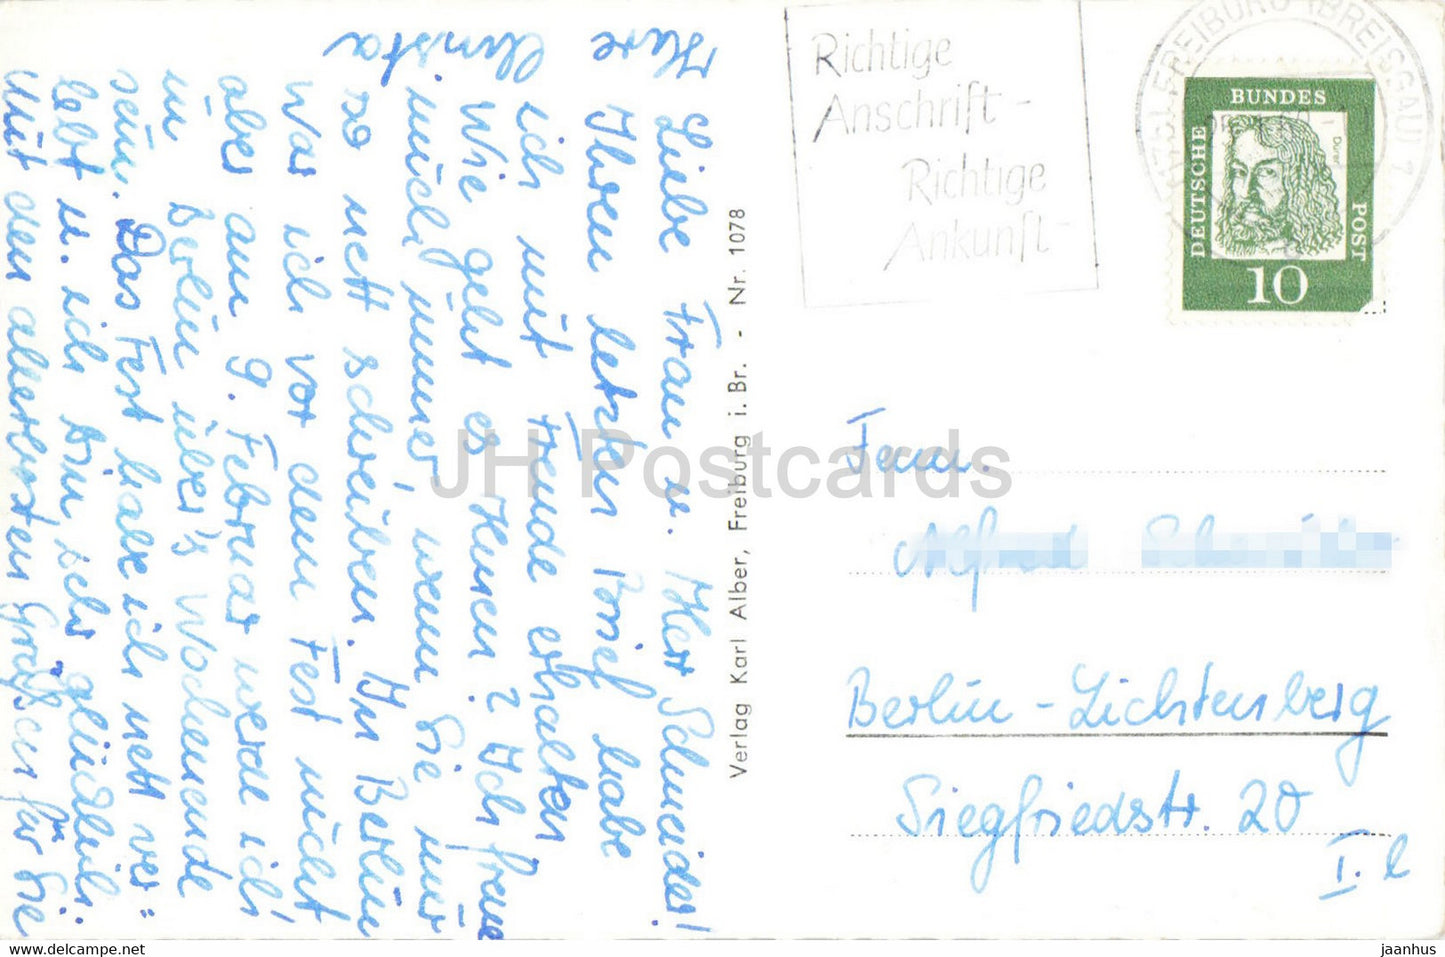 Liebe Frau u. Herr Schneider!
Ihren letzten Brief habe
ich mit Freude erhalten
Wie geht es Ihnen? Ich freue
mich immer wenn Sie mir
so nett schreiben. In Berlin
war ich vor dem Fest nicht
aber am 9. Februar werde ich
in Berlin über's Wochenende
sein. Das Fest habe ich nett ver=
lebt u. ich bin sehr glücklich.
Mit den allerbesten Grüßen für Sie
Ihre
Christa
Verlag Karl Alber, Freiburg i. Br. - Nr. 1078
Richtige
Anschrift -
Richtige
Ankunft -
FREIBURG (BREISGAU) 2
BUNDES
DEUTSCHE
POST
Dürer
10
Fam.
Alfred
Berlin-Lichtenberg
Siegfriedstr. 20
I. l
JH Postcards
www.delcampe.net
jaanhus